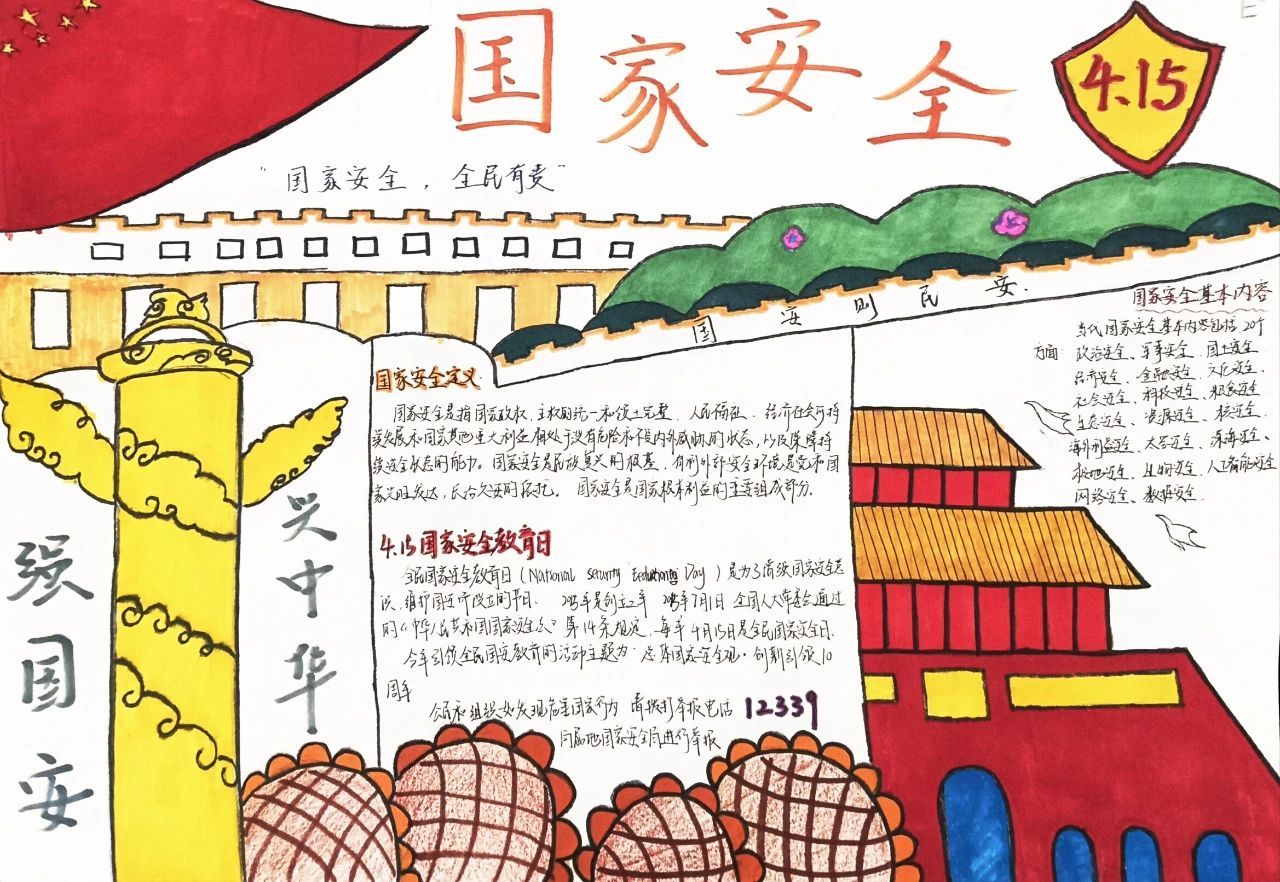 国家安全
4.15
"国家安全，全民有责"
国安则民安.
国家安全基本内容
当代国家安全基本内容包括20个
方面: 政治安全、军事安全、国土安全
经济安全、金融安全、文化安全、
社会安全、科技安全、粮食安全
生态安全、资源安全、核安全、
海外利益安全、太空安全、深海安全、
极地安全、生物安全、人工智能安全
网络安全、数据安全.
国家安全定义
国家安全是指国家政权、主权、统一和领土完整、人民福祉、经济社会可持
续发展和国家其他重大利益相对处于没有危险和不受内外威胁的状态，以及保障持
续安全状态的能力。国家安全是民族复兴的根基，有利外部安全环境是党和国
家兴旺发达，长治久安的依托。国家安全是国家根本利益的重要组成部分.
4.15国家安全教育日
全民国家安全教育日（National Security Day）是为了增强国家安全意
识，维护国家而设立的节日. 2015年7月1日 全国人大常委会通过
的《中华人民共和国国家安全法》第14条规定，每年4月15日是全民国家安全日.
今年引领全民国安教育的活动主题为：总体国家安全观·创新引领10
周年
公民和组织如发现危害国家行为 请拨打举报电话 12339
向当地国家安全局进行举报
兴中华
强国安